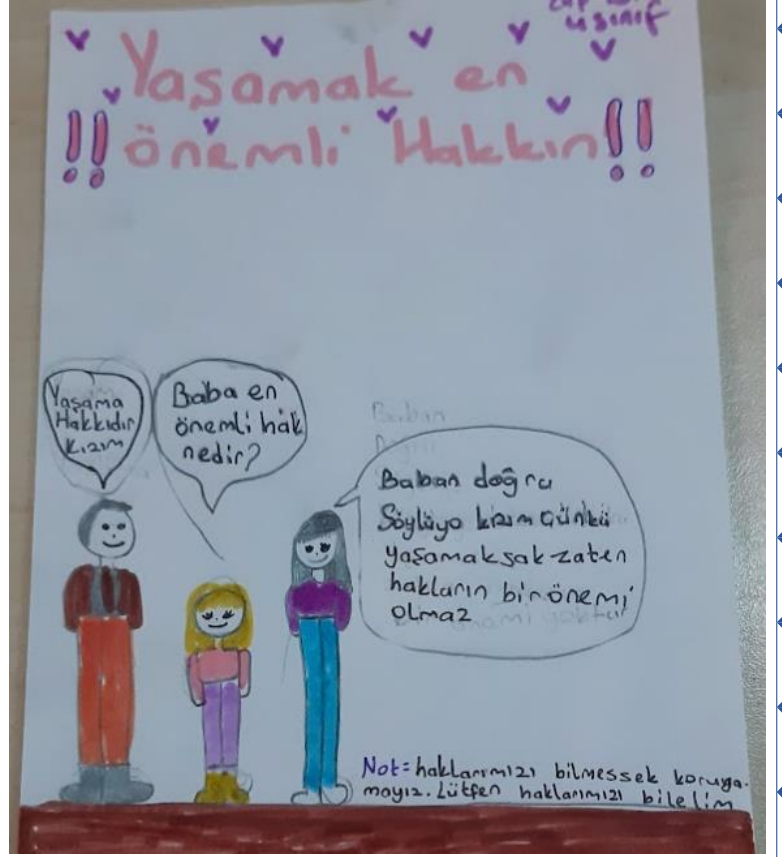 4 sınıf
Yaşamak en
!! önemli Hakkın!!
Yaşama
Hakkıdır
Kızım
Baba en
önemli hak
nedir?
Baban
Baban doğru
Söylüyo kızım Çünkü
yaşamaksak zaten
hakların bir önemi
olmaz
Not= haklarımızı bilmessek koruya-
mayız. Lütfen haklarımızı bilelim